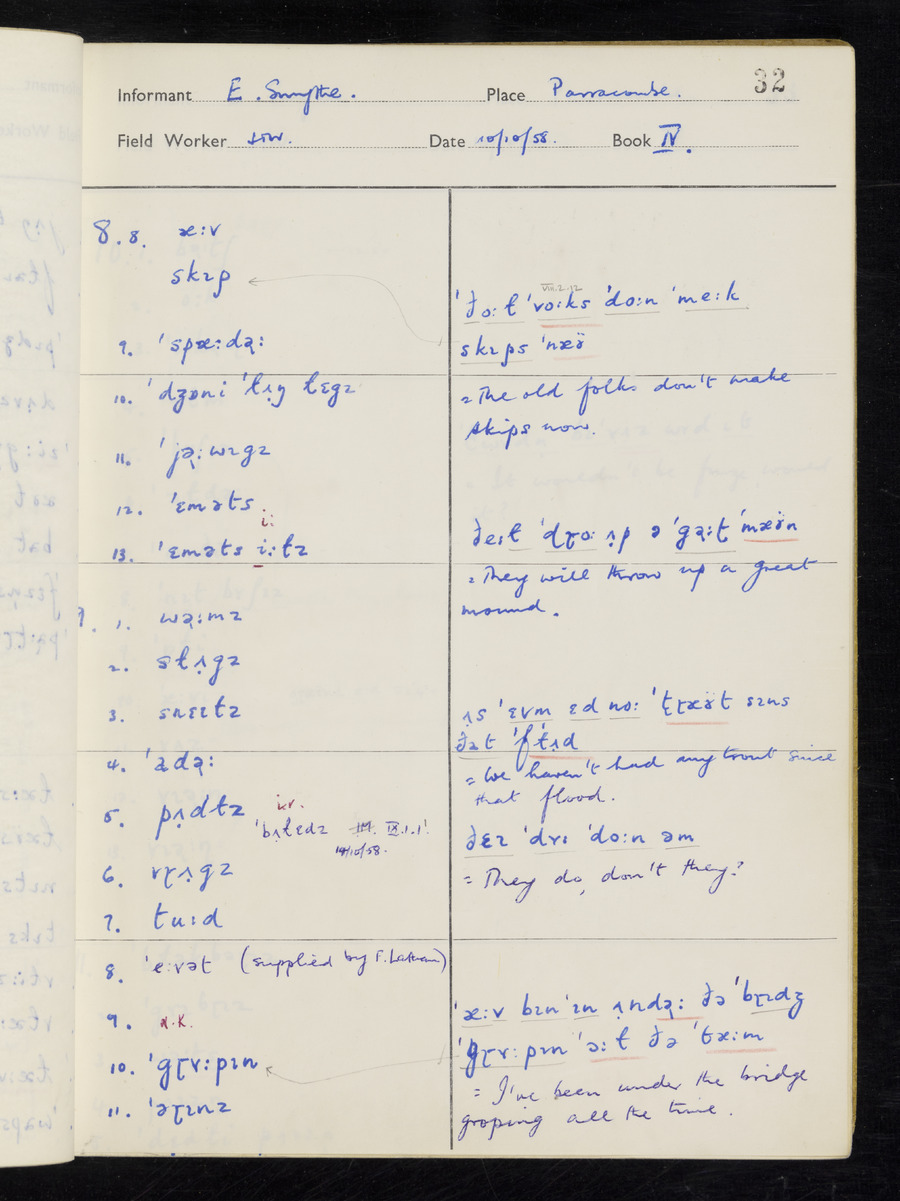 32
Informant E. Smythe. Place Parracombe.
Field Worker Date 10/10/58. Book IV.
8.8. æ:v
skɪp
9. 'spæ:də̣:
10. 'dʒɒni 'lʌŋ lɛgz
11. 'jə̣:wɪgz
12. 'ɛməts
i:
13. 'ɛməts i:tz
9. 1. wə̣:mz
2. slʌgz
3. snɛɪlz
4. 'adə̣:
5. pʌdlz i.r.
'bʌlɛdz IX.1.1.
10/58.
6. vɽʌgz
7. tu:d
8. 'e:vət (supplied by F. Latham)
9. n.k.
10. 'gɽv:pɪn
11. 'əɽɪnz
VIII.2.12
'ðo:l 'vo:ks 'do:n 'me:k
skɪps 'næö
= The old folks don't make
skips now.
ðeɪl 'dɽo: ʌp ə 'gə̣:t 'mæön
= They will throw up a great
mound.
ʌs 'ɛvm ɛd no: 'tɽæöt sɪns
ðat 'flʌd
= We haven't had any trout since
that flood.
ðɛɪ 'dvɪ 'do:n əm
= They do, don't they?
'æ:v bɪn 'ɪn ʌndə̣: ðə 'bɽɪdʒ
'gɽv:pɪn 'ɔ:l ðə 'tæ:m
= I've been under the bridge
groping all the time.